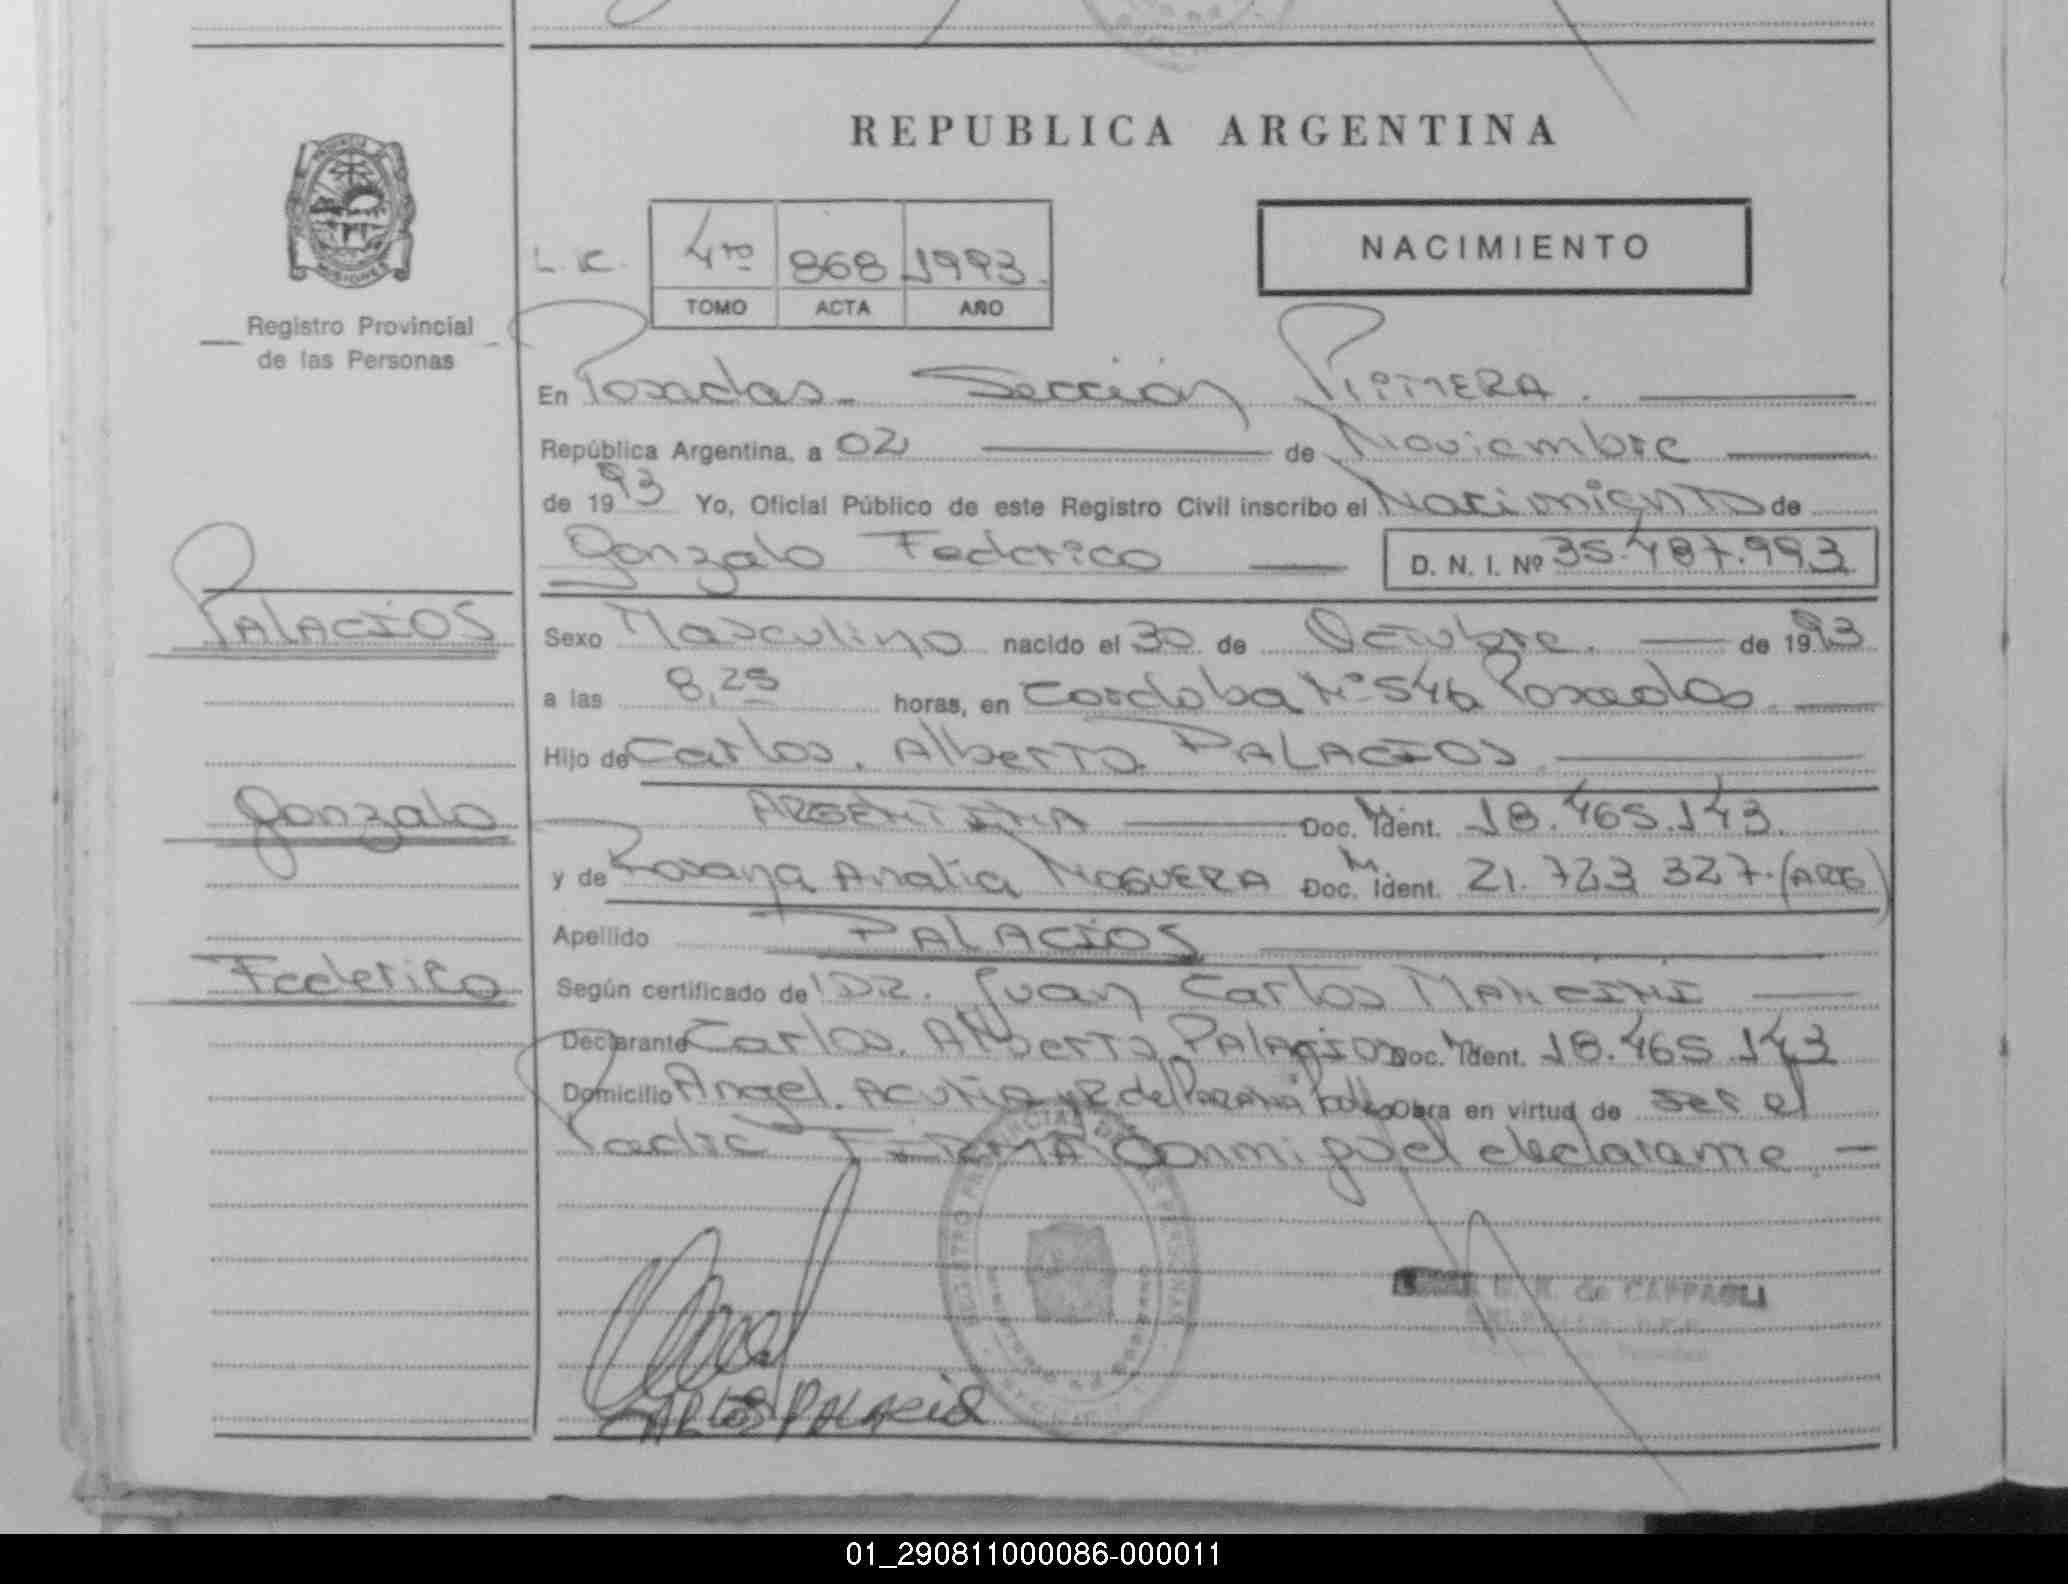 REPUBLICA ARGENTINA
NACIMIENTO
L.C. 4to 868 1993.
TOMO ACTA AÑO
MISIONES
Registro Provincial
de las Personas
En Posadas. Sección PRIMERA.
República Argentina, a 02 de Noviembre
de 1993 Yo, Oficial Público de este Registro Civil inscribo el Nacimiento de
Gonzalo Federico D. N. I. Nº 35.487.993
PALACIOS
Gonzalo
Federico
Sexo Masculino nacido el 30 de Octubre. de 1993
a las 8,25 horas, en Cordoba Nº 546 Posadas.
Hijo de Carlos. Alberto PALACIOS.
ARGENTINA Doc. M. Ident. 18.465.143
y de Rosana Analia NOGUERA Doc. M. Ident. 21.723 327. (ARG)
Apellido PALACIOS
Según certificado de DR. Juan Carlos MANCINI
Declarante Carlos. Alberto Palacios Doc. Ident. 18.465.143
Domicilio Angel. ACUÑA y R del PARANA Obra en virtud de ser el
Padre FIRMA Conmigo el declarante
REGISTRO PROVINCIAL DE LAS PERSONAS
MINISTERIO DE GOBIERNO
de CAPPAGLI
CARLOS PALACIOS
01_290811000086-000011